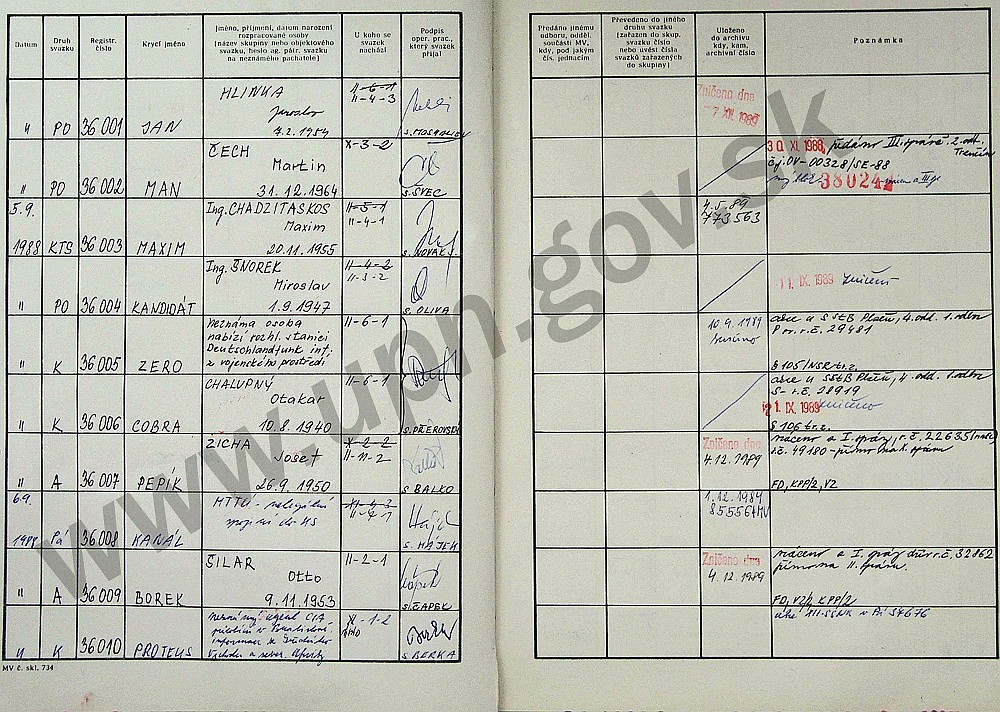 Datum
Druh svazku
Registr. číslo
Krycí jméno
Jméno, příjmení, datum narození
rozpracované osoby
(název skupiny nebo objektového
svazku, heslo ag. pátr. svazku
na neznámého pachatele)
U koho se
svazek
nachází
Podpis
oper. prac.,
který svazek
přijal
Předáno jinému
odboru, odděl.
součásti MV,
kdy, pod jakým
čís. jednacím
Převedeno do jiného
druhu svazku
(zařazen do skup.
svazku číslo
nebo uvést čísla
svazků zařazených
do skupiny)
Uloženo
do archivu
kdy, kam,
archivní číslo
Poznámka
" PO 36 001 JAN
HLINKA
Jaroslav
7.2.1954
II-6-1
II-4-3
Zničeno dne
-7 XII. 1989
" PO 36 002 MAN
ČECH
Martin
31.12.1964
X-3-2
s. ŠVEC
30 XI. 1988, předáno III. správě 2. odb.
Trenčín
čj. OV-00328/SE-88
38024
5.9.
1988 KTS 36 003 MAXIM
Ing. CHADZITASKOS
Maxim
20.11.1955
II-5-1
II-4-1
s. NOVÁK J.
4.5.89
773563
" PO 36 004 KANDIDÁT
Ing. ŠNOREK
Miroslav
1.9.1947
II-4-2
II-3-2
s. OLIVA
11. IX. 1989 zničeno
" K 36 005 ZERO
Neznámá osoba
nabízí rozhl. stanici
Deutschlandfunk inf.
z vojenského prostředí
II-6-1
10.4.1989
akce u S StB Plzeň, 4. odd. 1. odbor
P r.č. 29481
§ 105/NSR tr.z.
" K 36 006 COBRA
CHALUPNÝ
Otakar
10.8.1940
II-6-1
s. PŘEROVSKÝ
akce u S StB Plzeň, 4. odd. 1. odbor
S- r.č. 28919
21. IX. 1989 zničeno
§ 106 tr.z.
" A 36 007 PEPÍK
ZÍCHA
Josef
26.9.1950
X-2-2
II-11-2
s. BALKO
Zničeno dne
4.12.1989
r.č. 49180
FO, KPP/2, VZ
6.9.
1988 Pá 36 008 KANÁL
MTTÚ - nelegální
spojení do NS
s. HÁJEK
1.12.1989
" A 36 009 BOREK
ŠILAR
Otto
9.11.1953
II-2-1
s. ČAPEK
Zničeno dne
4.12.1989
r.č. 32862
FO, VZ/2, KPP/2
" K 36 010 PROTEUS
Neznámý agent CIA
X-1-2
s. BERKA
MV č. skl. 734
www.upn.gov.sk